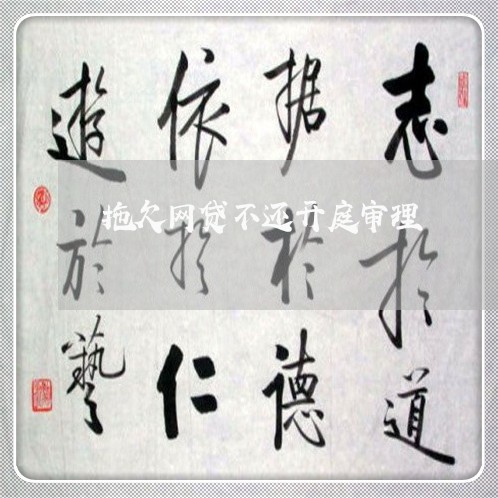 志於道
据於德
依於仁
遊於藝
拖欠网贷不还开庭审理